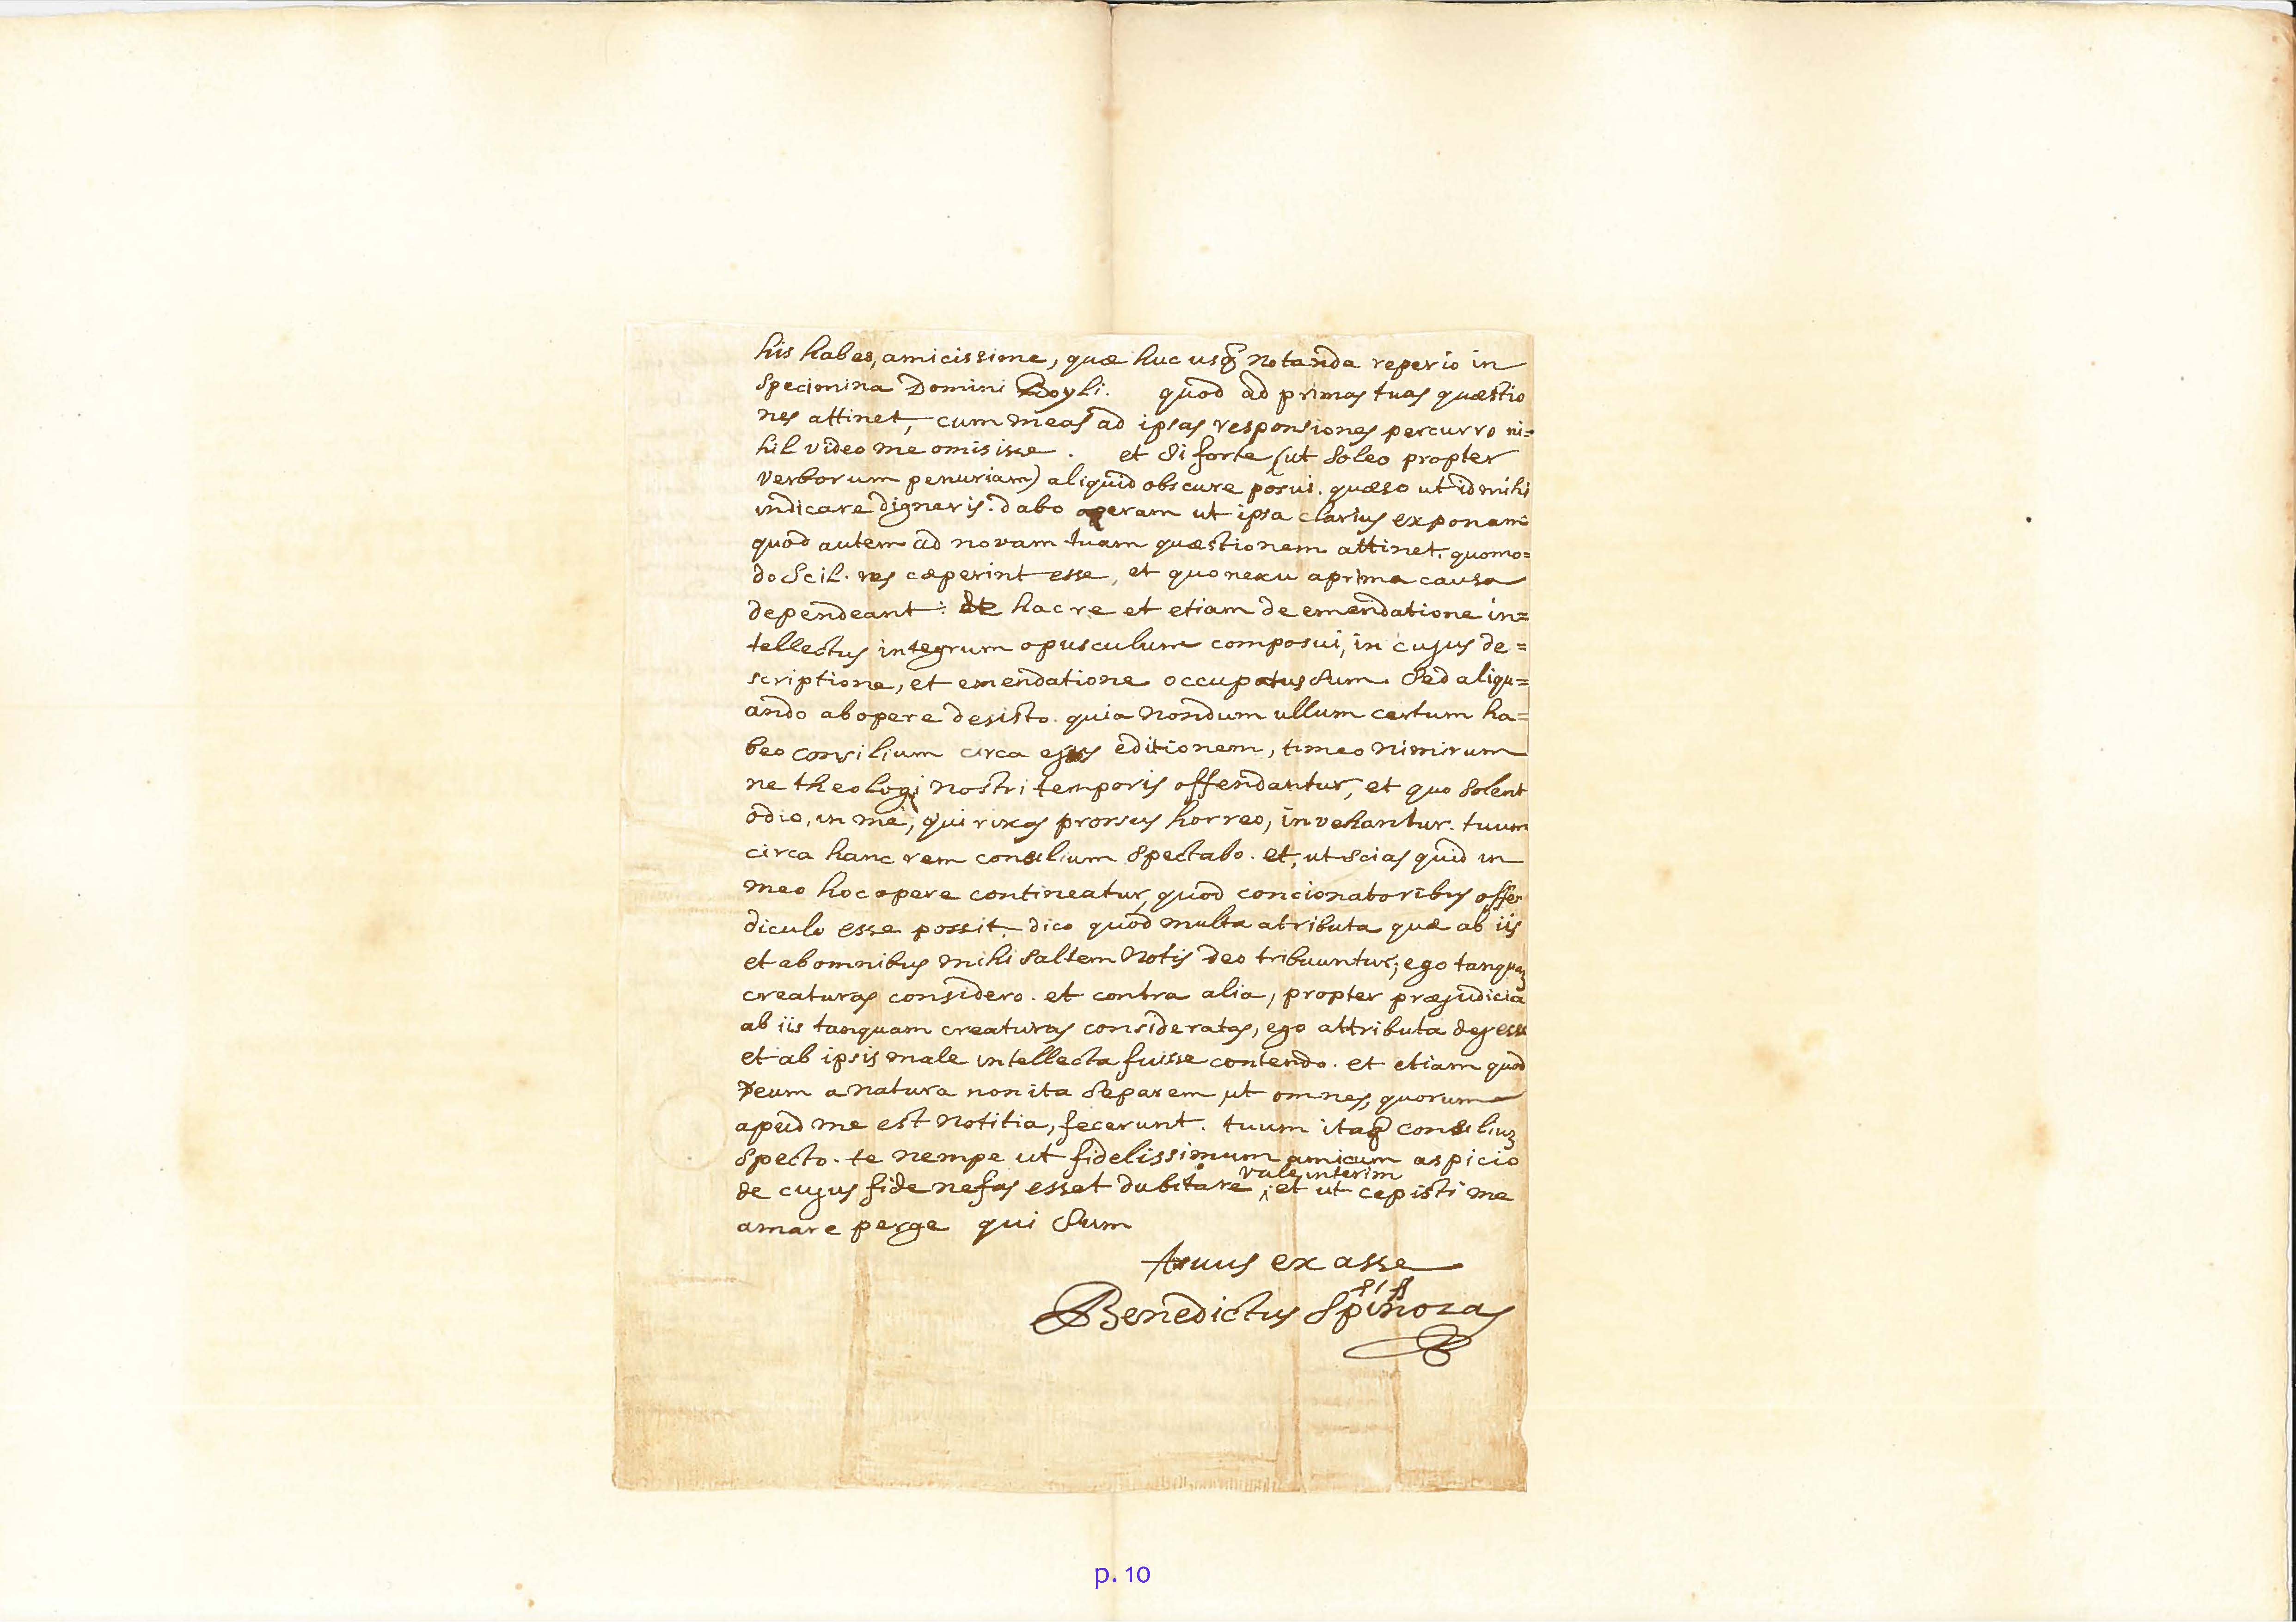 his habes, amicissime, quæ huc usq̃ notanda reperio in
specimina Domini Boyli. quod ad primas tuas quæstio
nes attinet, cum meas ad ipsas responsiones percurro ni=
hil video me omisisse. et si forte (ut soleo propter
verborum penuriam) aliquid obscure posui. quæso ut id mihi
indicare digneris. dabo operam ut ipsa clarius exponam
quod autem ad novam tuam quæstionem attinet. quomo=
do scil. res cæperint esse, et quo nexu a prima causa
dependeant: de hac re et etiam de emendatione in=
tellectus integrum opusculum composui, in cujus de=
scriptione, et emendatione occupatus sum. sed aliqu=
ando ab opere desisto. quia nondum ullum certum ha=
beo consilium circa ejus editionem, timeo nimirum
ne theologi nostri temporis offendantur, et quo solent
odio, in me, qui rixas prorsus horreo, invehantur. tuum
circa hanc rem consilium spectabo. et, ut scias quid in
meo hoc opere contineatur, quod concionatoribus offen
diculo esse possit, dico quod multa atributa quæ ab iis
et ab omnibus mihi saltem notis deo tribuuntur; ego tanquam
creaturas considero. et contra alia, propter præjudicia
ab iis tanquam creaturas consideratas, ego attributa dei esse
et ab ipsis male intellecta fuisse contendo. et etiam quod
Deum a natura non ita separem ut omnes, quorum
apud me est notitia, fecerunt. tuum itaq̃ consilium
specto. te nempe ut fidelissimum amicum aspicio
vale interim
de cujus fide nefas esset dubitare; et ut cepisti me
amare perge qui sum
tuus ex asse
Benedictus Spinozas
p. 10